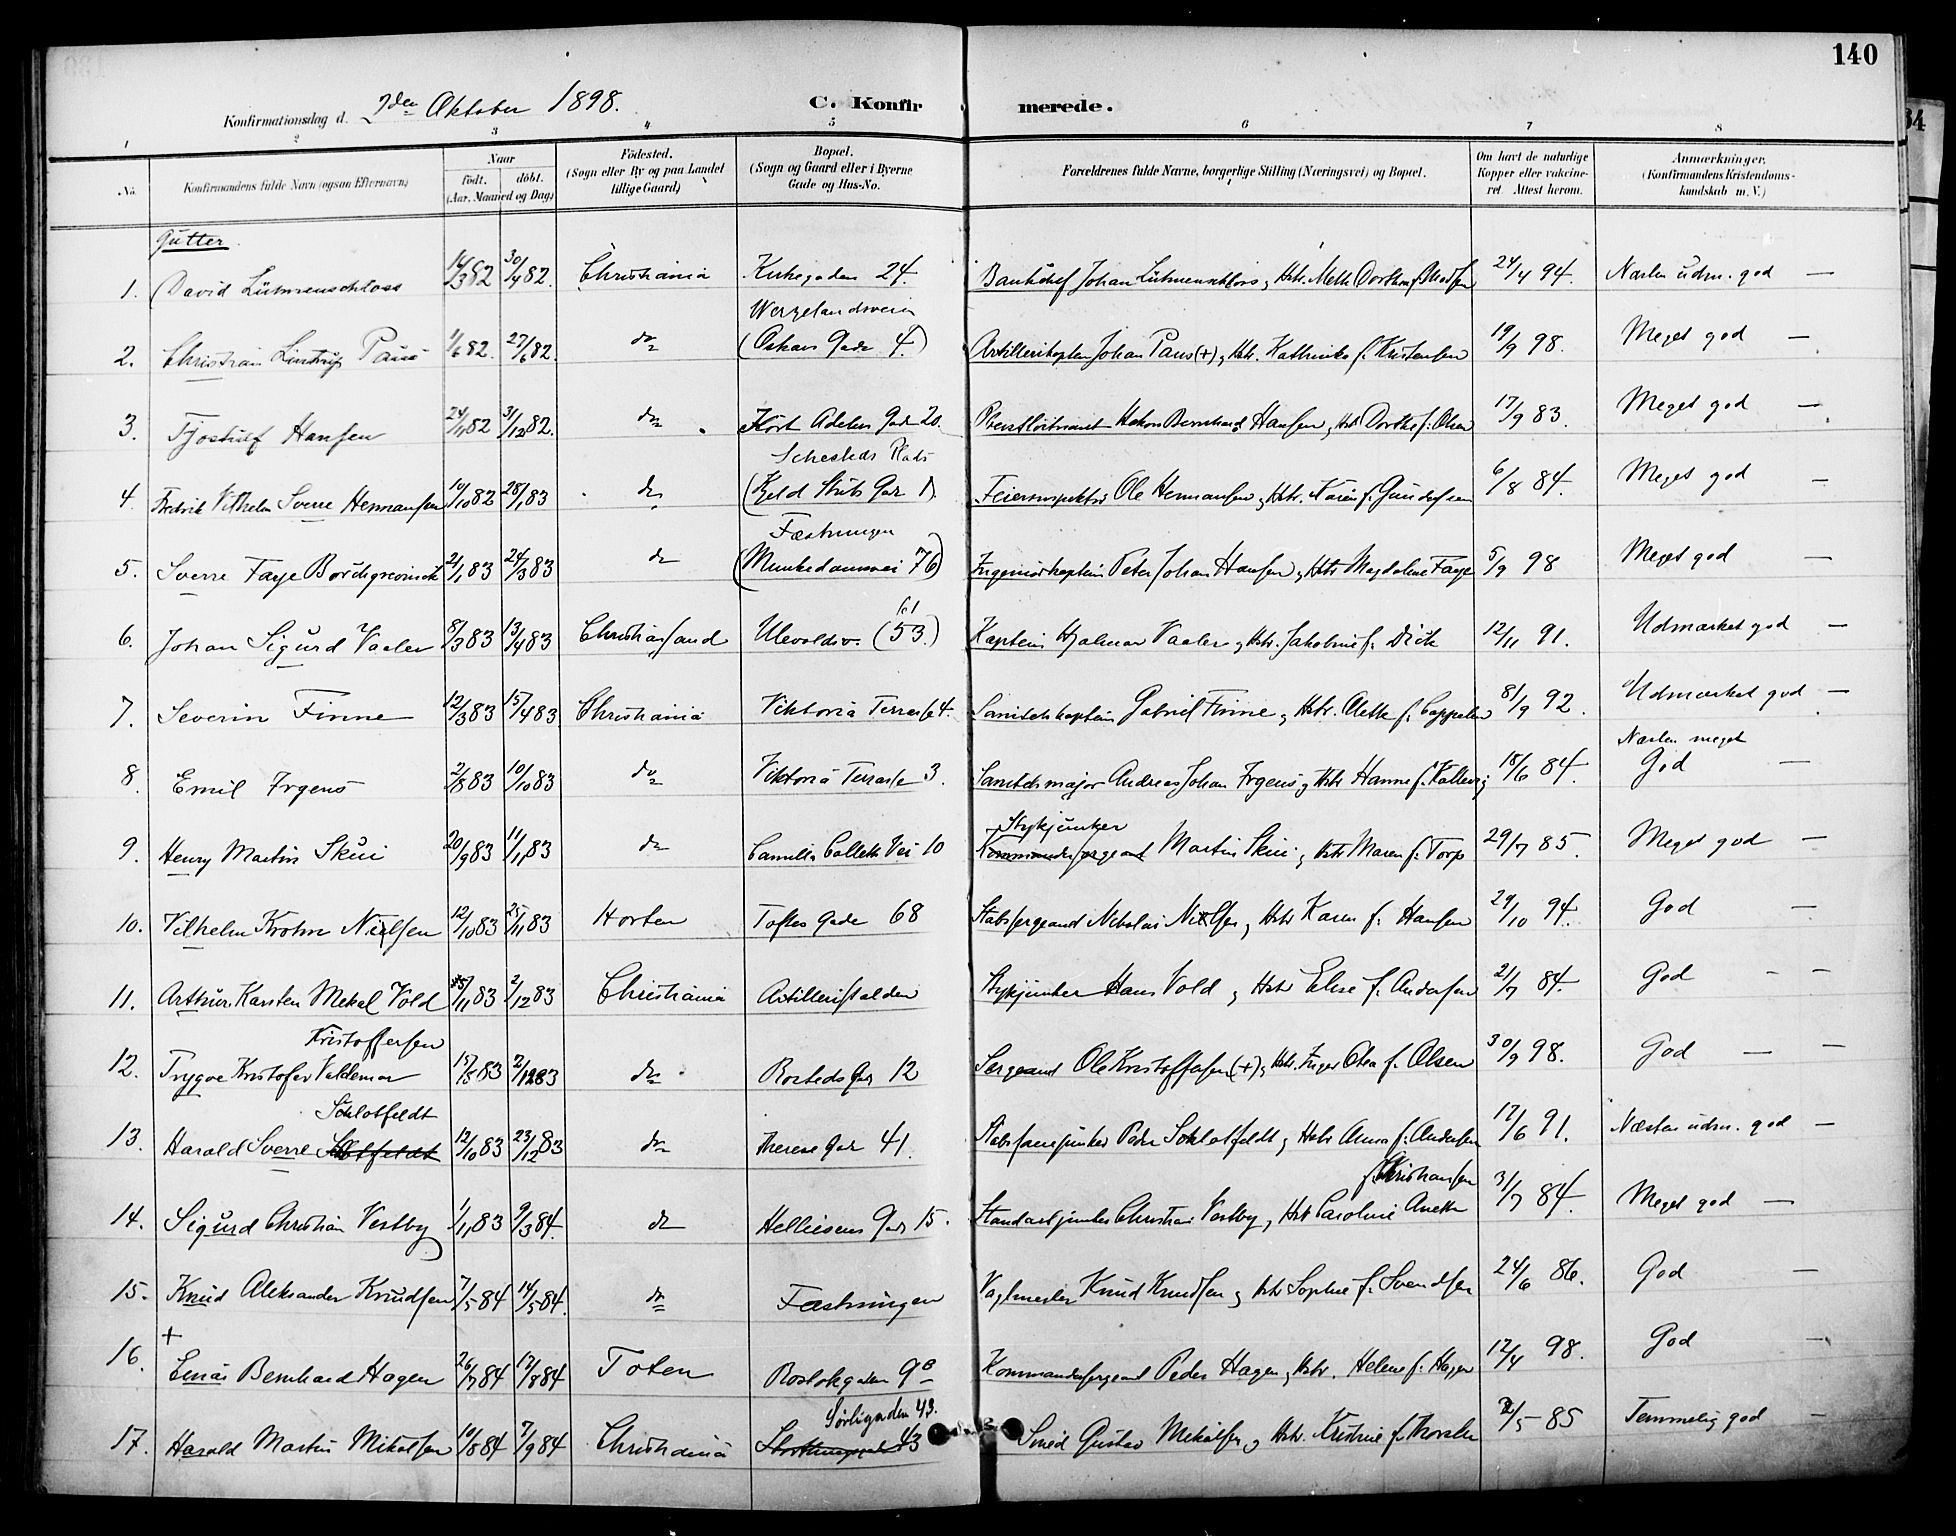 140
Konfirmationsdag d. 2den Oktober 1898. C. Konfirmerede.
1 2 3 4 5 6 7 8
No. Konfirmandens fulde Navn (ogsaa Efternavn) Naar født. døbt. (Aar, Maaned og Dag) Fødested. (Sogn eller By og paa Landet tillige Gaard) Bopæl. (Sogn og Gaard eller i Byerne Gade og Hus-No. Forældrenes fulde Navne, borgerlige Stilling (Næringsvei) og Bopæl. Om havt de naturlige Kopper eller vakcineret Attest herom. Anmærkninger. (Konfirmandens Kristendomskundskab m. V.)
Gutter.
1. David Lütmenschloss 14/3 82 30/4 82. Christiania Kirkegaden 24. Johan Lütmenschloss 24/4 94. Næsten udm. god —
Wergelandsveien
2. Christian Lintrup Paus 1/6 82. 27/6 82. do (Oskars Gade 4.) Artillerikaptein Johan Paus (+) g Hstr. Kathinka f. Kristensen 19/9 98. Meget god —
3. Tjostulf Hansen 24/11 82 31/12 82. do Kort Adelers Gade 20. Premierløitnant Hakon Bernhard Hansen g Hstr Dorthe f. Olsen 17/9 83. Meget god —
Sehesteds Plads
4. Fredrik Vilhelm Sverre Hermansen 10/10 82 28/1 83 do (Kjeld Stubs Gad 1) Feierinspektør Ole Hermansen g Hstr. Karen f. Gundersen 6/8 84. Meget god —
Fæstningen
5. Sverre Faye Borchgrevinck 21/1 83 24/3 83 do (Munkedamsvei 76) Ingeniørkaptein Peter Johan Hansen g Hstr Magdaline Faye 5/9 98 Meget god —
61
6. Johan Sigurd Vaaler 8/3 83 13/4 83 Christiansand Ulevoldsv. (53.) Kaptein Hjalmar Vaaler g Hstr. Jakobine f. Dick 12/11 91. Udmærket god —
7. Severin Finne 12/3 83 15/4 83 Christiania Viktoria Terrasse 4. Sanitetskaptein Gabriel Finne g Hstr. Alette f. Cappelen 92. Udmærket god —
Næsten meget
8. Emil Irgens 2/8 83 10/10 83 do Viktoria Terrasse 3. Sanitetsmajor Andreas Johan Irgens g Hstr Hanne f. Kallevig 18/6 84. God —
Stykjunker
9. Henry Martin Skui 20/9 83 11/11 83 do Camilla Colletts Vei 10 Kommandersergeant Martin Skui g Hstr Maren f. Torp 29/7 85. Meget god —
10. Vilhelm Krohn Nielsen 12/10 83 25/11 83 Horten Toftes Gade 68 Stabssergeant Nikolai Nielsen g Hstr Karen f. Hansen 29/10 94. God —
11. Arthur Karsten Mekal Vold 11 83 2/12 83 Christiania Artilleristalden Stykjunker Hans Vold g Hstr Elise f. Andersen 21/7 84. God — —
Kristoffersen
12. Trygve Kristofer Valdemar 15/8 83 2/12 83 do Rosteds Gad 12 Sergeant Ole Kristoffersen (+) g Hstr. Inger Olea f. Olsen 30/9 98. God — —
Schlotfeldt
13. Harald Sverre Slotfeldt 12/10 83 23/12 83 do Therese Gad 41. Stabsfanejunker Peder Schlotfeldt g Hstr Anna f. Andersen 17/6 91. Næsten udm. god —
f. Christiansen
14. Sigurd Christian Vestby 1/11 83 9/3 84. do Helliesens Gad 15. Standartjunker Christian Vestby g Hstr Caroline Anette 31/7 84. Meget god —
15. Knud Aleksander Knudsen 7/5 84 14/5 84. do Fæstningen Vagtmester Knud Knudsen g Hstr Sophie f. Svendsen 24/6 86. God —
+
16. Einar Bernhard Hagen 26/7 84 17/8 84 Toten Rostokgaden 9 Kommandersergeant Peder Hagen g Hstr. Helene f. Hagen 12/4 98. God —
Sørligaden 43.
17. Harald Martin Mikalsen 10/8 84 7/9 84 Christiania 43 Smed Gustav Mikalsen g Hstr. Kristine f. 2/5 85 Temmelig god —